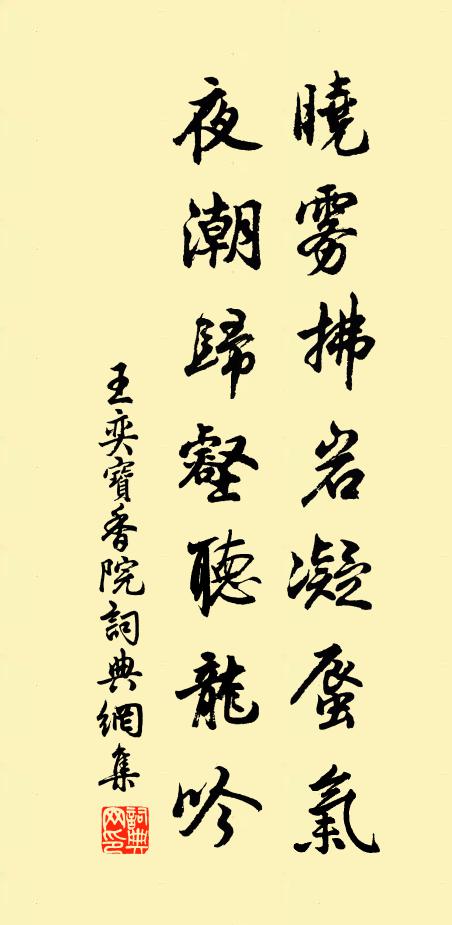 曉雾拂岩凝蜃氣
夜潮歸壑聽龍吟
王奕寶香院詞典網集
詞典網印